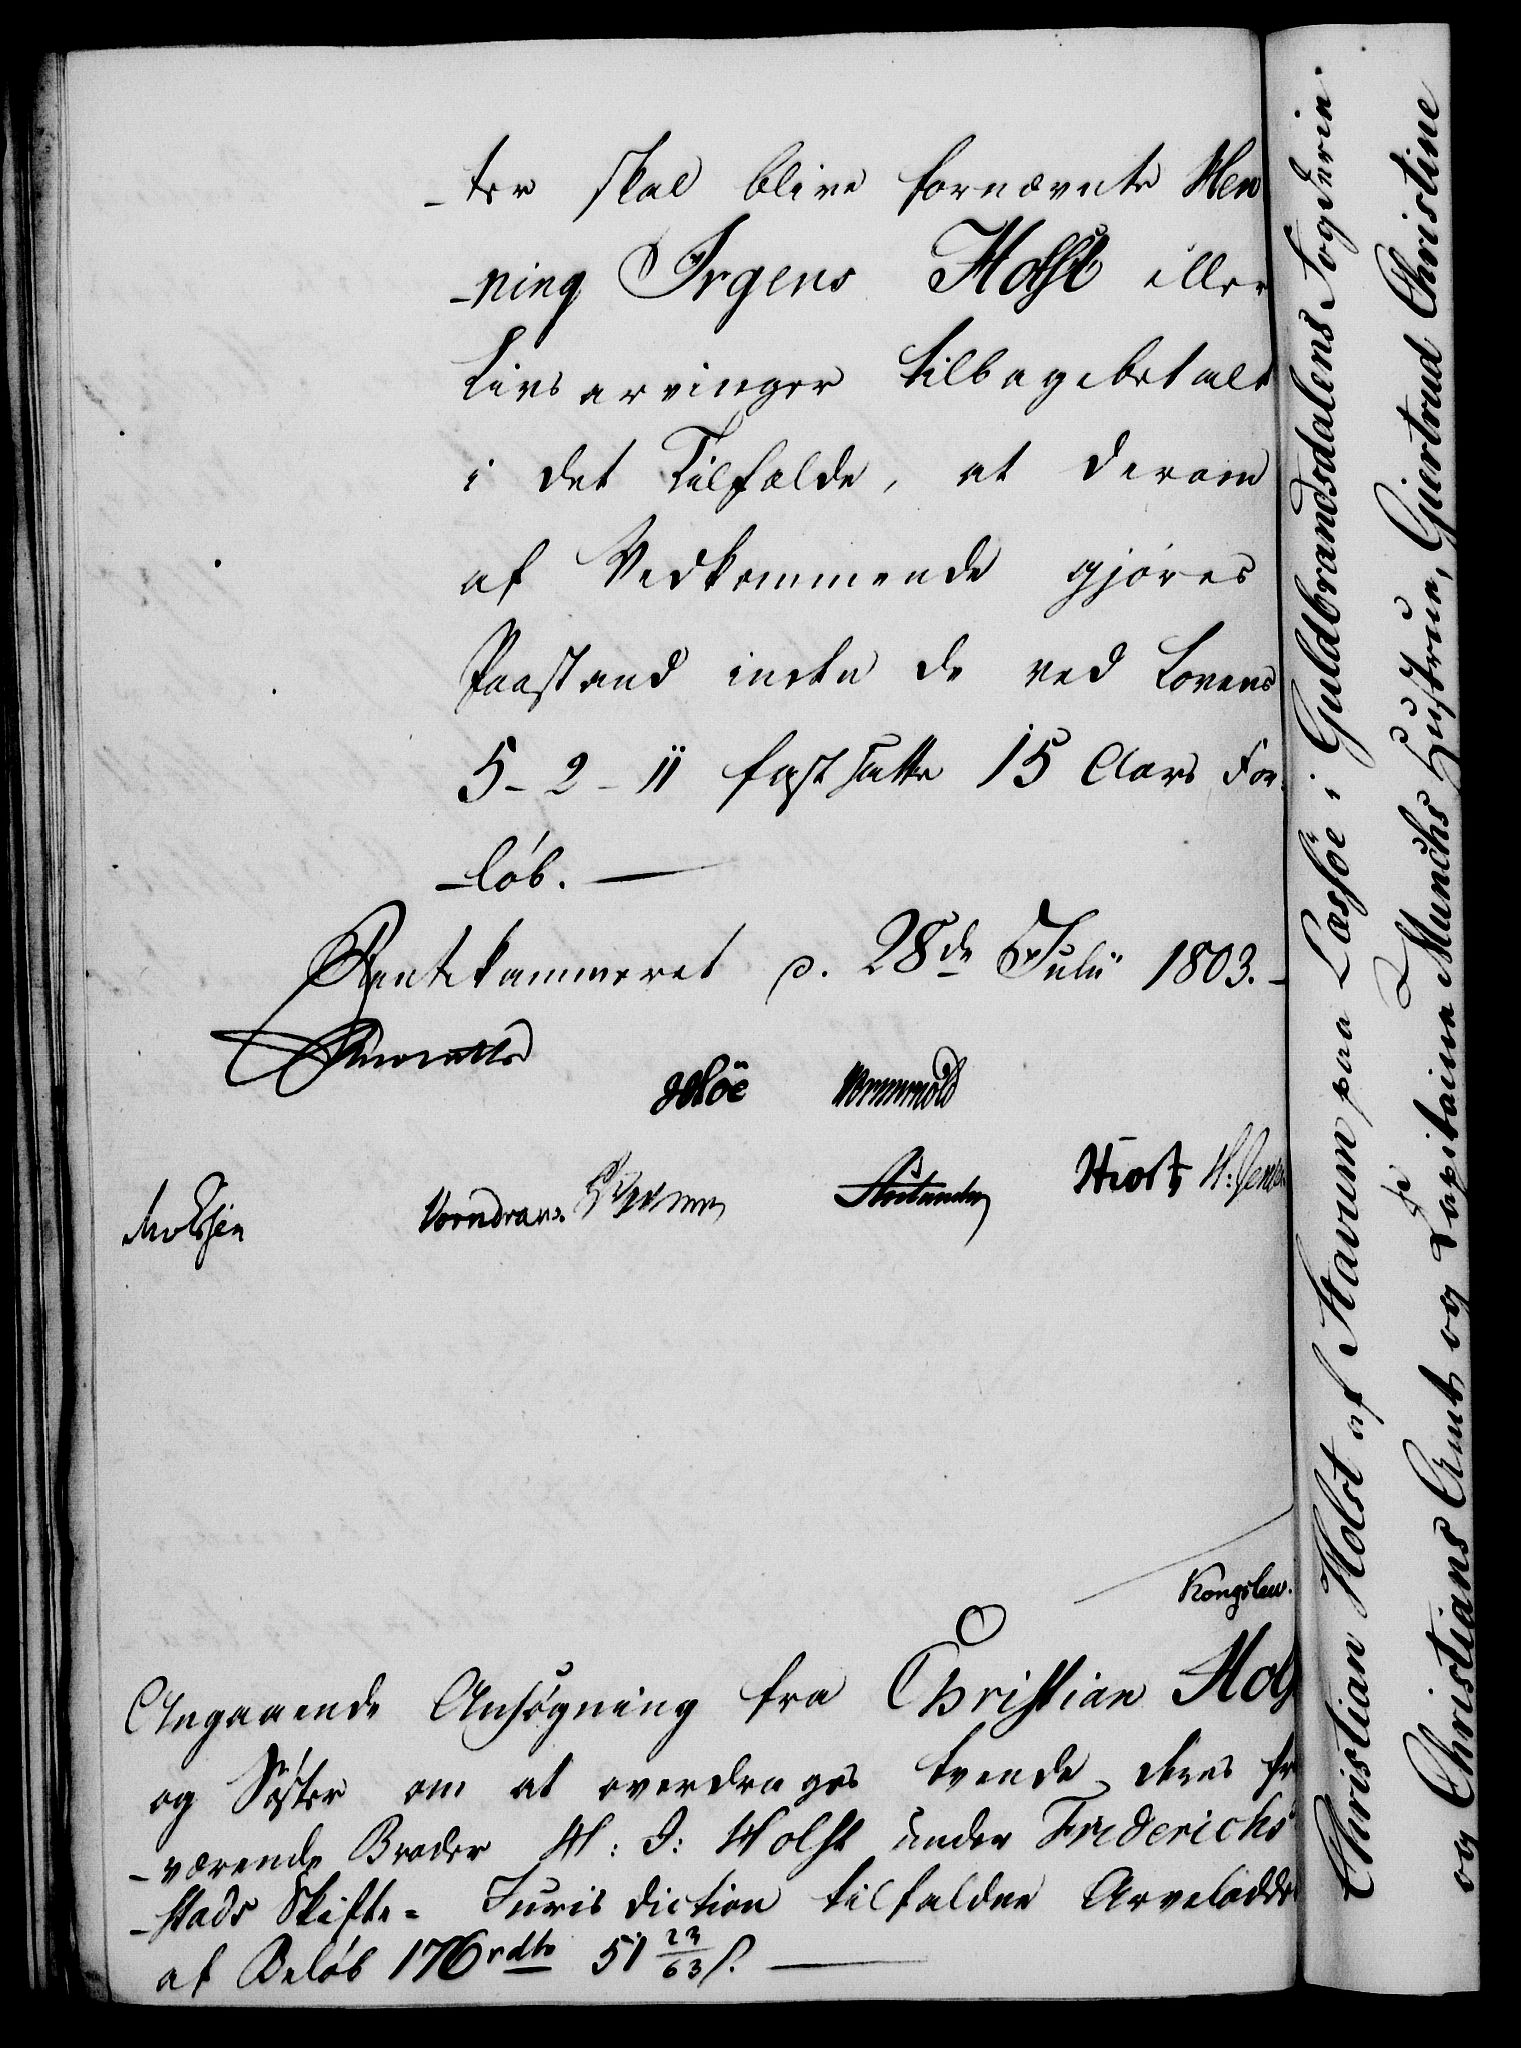 -ter skal blive fornævnte Hen
-ning Irgens Holst eller
Livsarvinger tilbagebetalt
i det Tilfælde, at derom
af Vedkommende gjøres
Paastand inden de ved Lovens
5-2-11 fastsatte 15 Aars For-
-løb. —
Rentekammeret d. 28de Julii 1803. -
Wormskiold
Vorndran
Hiort H: Jensen
Kongslew.
Angaaende Ansøgning fra Christian Hols
og Søster om at overdrages tvende deres fr
-værende Broder H: I: Holst under Friderichs
-stads Skifte= Jurisdiction tilfaldne Arvelodde
af Beløb 176 rdlr 51 23/63 s. —
Christian Holst af Stavum paa Læssøe i Guldbrandsdalens Fogderie
og Christians Amt og Capitaine Munchs Hustrue, Giertrud Christine